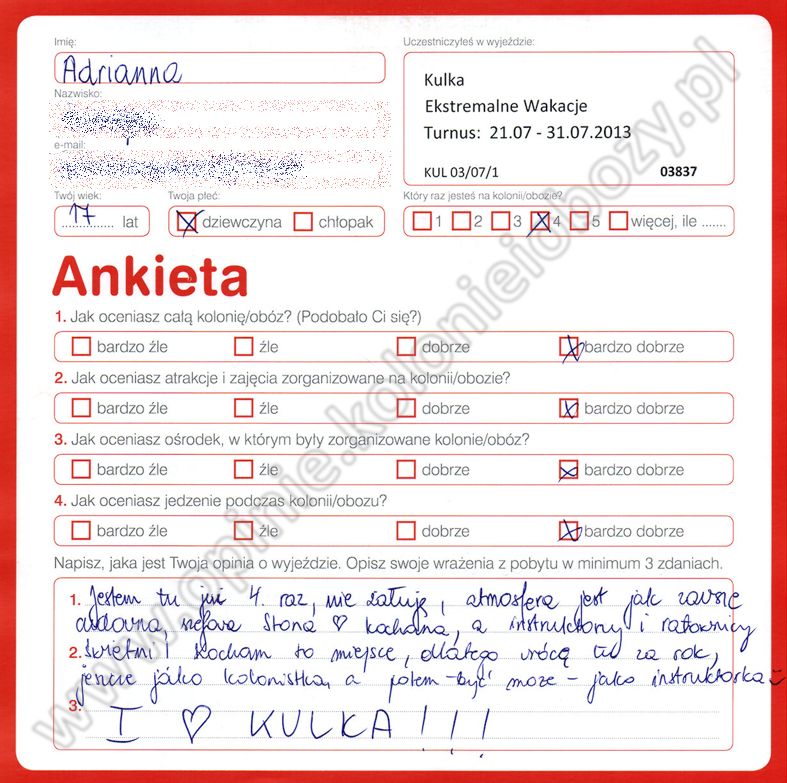 Imię:
Adrianna
Nazwisko:
e-mail:
Twój wiek:
17 lat
Twoja płeć:
dziewczyna chłopak
Uczestniczyłeś w wyjeździe:
Kulka
Ekstremalne Wakacje
Turnus: 21.07 - 31.07.2013
KUL 03/07/1 03837
Który raz jesteś na kolonii/obozie?
1 2 3 4 5 więcej, ile .......
Ankieta
1. Jak oceniasz całą kolonię/obóz? (Podobało Ci się?)
bardzo źle źle dobrze bardzo dobrze
2. Jak oceniasz atrakcje i zajęcia zorganizowane na kolonii/obozie?
bardzo źle źle dobrze bardzo dobrze
3. Jak oceniasz ośrodek, w którym były zorganizowane kolonie/obóz?
bardzo źle źle dobrze bardzo dobrze
4. Jak oceniasz jedzenie podczas kolonii/obozu?
bardzo źle źle dobrze bardzo dobrze
Napisz, jaka jest Twoja opinia o wyjeździe. Opisz swoje wrażenia z pobytu w minimum 3 zdaniach.
1. Jestem tu już 4. raz, nie żałuję, atmosfera jest jak zawsze
cudowna, szefowa Stona ♡ kochana, a instruktorzy i ratownicy
2. świetni! Kocham to miejsce, dlatego wrócę tu za rok,
jeszcze jako kolonistka, a potem - być może - jako instruktorka
3. I ♡ KULKA!!!
www.opinie.kolonieiobozy.pl